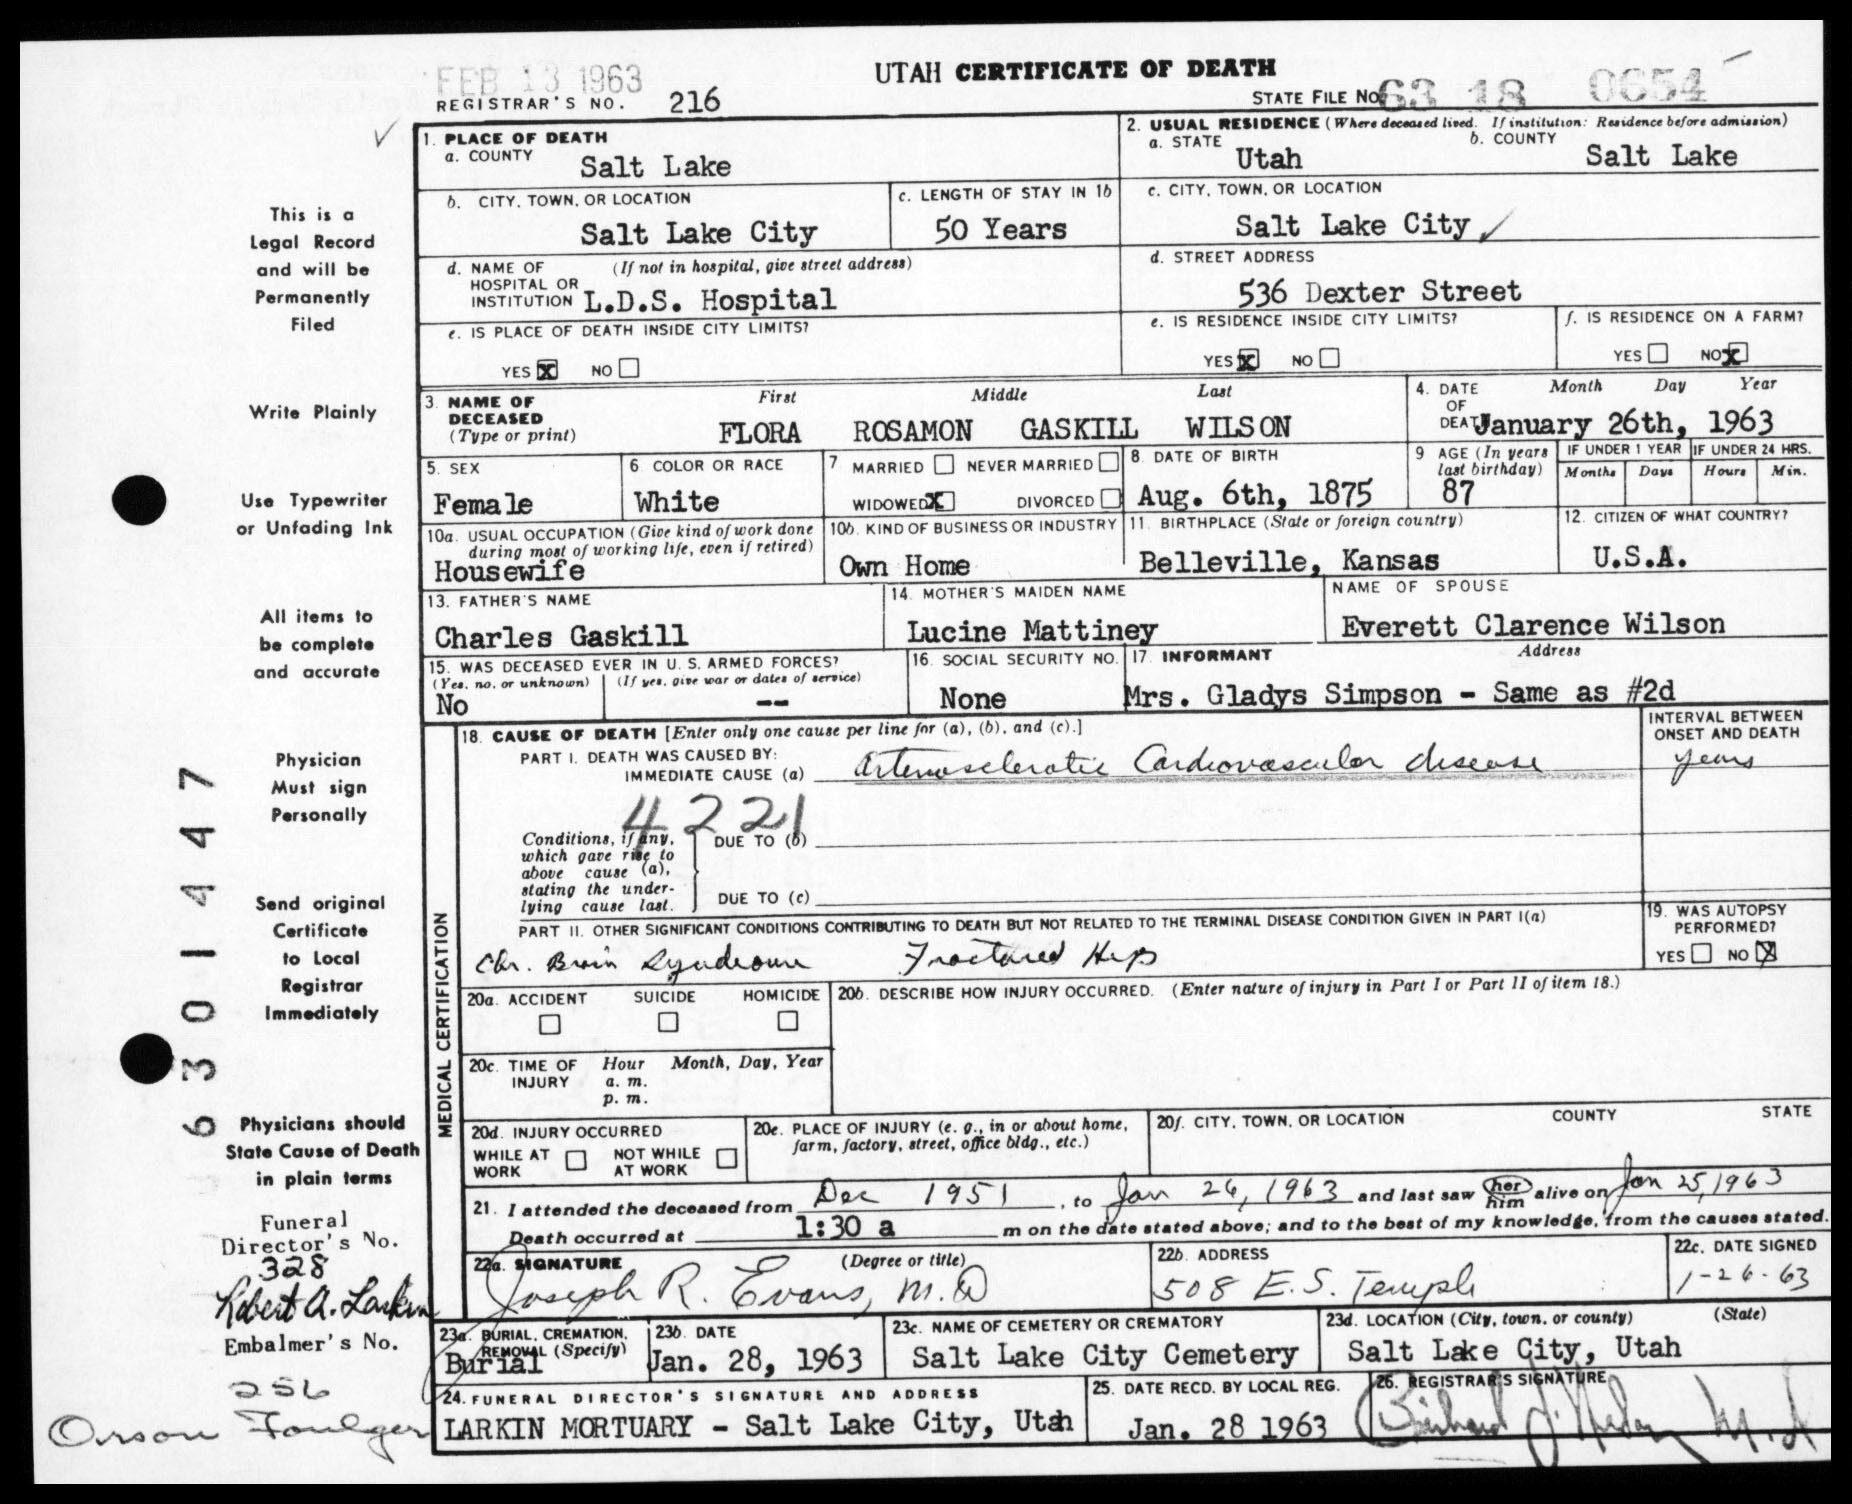 FEB 13 1963
UTAH CERTIFICATE OF DEATH
REGISTRAR'S NO. 216
STATE FILE NO. 63 18 0654
1. PLACE OF DEATH
a. COUNTY
Salt Lake
2. USUAL RESIDENCE (Where deceased lived. If institution: Residence before admission)
a. STATE Utah b. COUNTY Salt Lake
b. CITY, TOWN, OR LOCATION
Salt Lake City
c. LENGTH OF STAY IN 1b
50 Years
c. CITY, TOWN, OR LOCATION
Salt Lake City
d. NAME OF HOSPITAL OR INSTITUTION (If not in hospital, give street address)
L.D.S. Hospital
d. STREET ADDRESS
536 Dexter Street
e. IS PLACE OF DEATH INSIDE CITY LIMITS?
YES X NO
e. IS RESIDENCE INSIDE CITY LIMITS?
YES X NO
f. IS RESIDENCE ON A FARM?
YES NO X
3. NAME OF DECEASED (Type or print)
First Middle Last
FLORA ROSAMON GASKILL WILSON
4. DATE OF DEATH Month Day Year
January 26th, 1963
5. SEX
Female
6. COLOR OR RACE
White
7. MARRIED NEVER MARRIED
WIDOWED X DIVORCED
8. DATE OF BIRTH
Aug. 6th, 1875
9 AGE (In years last birthday)
87
IF UNDER 1 YEAR
Months Days
IF UNDER 24 HRS.
Hours Min.
10a. USUAL OCCUPATION (Give kind of work done during most of working life, even if retired)
Housewife
10b. KIND OF BUSINESS OR INDUSTRY
Own Home
11. BIRTHPLACE (State or foreign country)
Belleville, Kansas
12. CITIZEN OF WHAT COUNTRY?
U.S.A.
13. FATHER'S NAME
Charles Gaskill
14. MOTHER'S MAIDEN NAME
Lucine Mattiney
NAME OF SPOUSE
Everett Clarence Wilson
15. WAS DECEASED EVER IN U. S. ARMED FORCES?
(Yes, no, or unknown) (If yes, give war or dates of service)
No --
16. SOCIAL SECURITY NO.
None
17. INFORMANT Address
Mrs. Gladys Simpson - Same as #2d
MEDICAL CERTIFICATION
18. CAUSE OF DEATH [Enter only one cause per line for (a), (b), and (c).]
INTERVAL BETWEEN ONSET AND DEATH
PART I. DEATH WAS CAUSED BY:
IMMEDIATE CAUSE (a) Arteriosclerotic Cardiovascular disease
years
4221
Conditions, if any, which gave rise to above cause (a), stating the underlying cause last.
DUE TO (b)
DUE TO (c)
PART II. OTHER SIGNIFICANT CONDITIONS CONTRIBUTING TO DEATH BUT NOT RELATED TO THE TERMINAL DISEASE CONDITION GIVEN IN PART I(a)
Chr. Brain Syndrome Fractured Hip
19. WAS AUTOPSY PERFORMED?
YES NO X
20a. ACCIDENT SUICIDE HOMICIDE
20b. DESCRIBE HOW INJURY OCCURRED. (Enter nature of injury in Part I or Part II of item 18.)
20c. TIME OF INJURY Hour Month, Day, Year
a. m.
p. m.
20d. INJURY OCCURRED
WHILE AT WORK NOT WHILE AT WORK
20e. PLACE OF INJURY (e. g., in or about home, farm, factory, street, office bldg., etc.)
20f. CITY, TOWN, OR LOCATION COUNTY STATE
21. I attended the deceased from Dec 1951, to Jan 26, 1963 and last saw her him alive on Jan 25, 1963
Death occurred at 1:30 a m on the date stated above; and to the best of my knowledge, from the causes stated.
22a. SIGNATURE (Degree or title)
Joseph R. Evans, M.D
22b. ADDRESS
508 E. S. Temple
22c. DATE SIGNED
1-26-63
23a. BURIAL, CREMATION, REMOVAL (Specify)
Burial
23b. DATE
Jan. 28, 1963
23c. NAME OF CEMETERY OR CREMATORY
Salt Lake City Cemetery
23d. LOCATION (City, town, or county) (State)
Salt Lake City, Utah
24. FUNERAL DIRECTOR'S SIGNATURE AND ADDRESS
LARKIN MORTUARY - Salt Lake City, Utah
25. DATE RECD. BY LOCAL REG.
Jan. 28 1963
26. REGISTRAR'S SIGNATURE
M.D
This is a
Legal Record
and will be
Permanently
Filed
Write Plainly
Use Typewriter
or Unfading Ink
All items to
be complete
and accurate
Physician
Must sign
Personally
Send original
Certificate
to Local
Registrar
Immediately
Physicians should
State Cause of Death
in plain terms
Funeral
Director's No.
328
Robert A. Larkin
Embalmer's No.
256
Orson Foulger
6301447